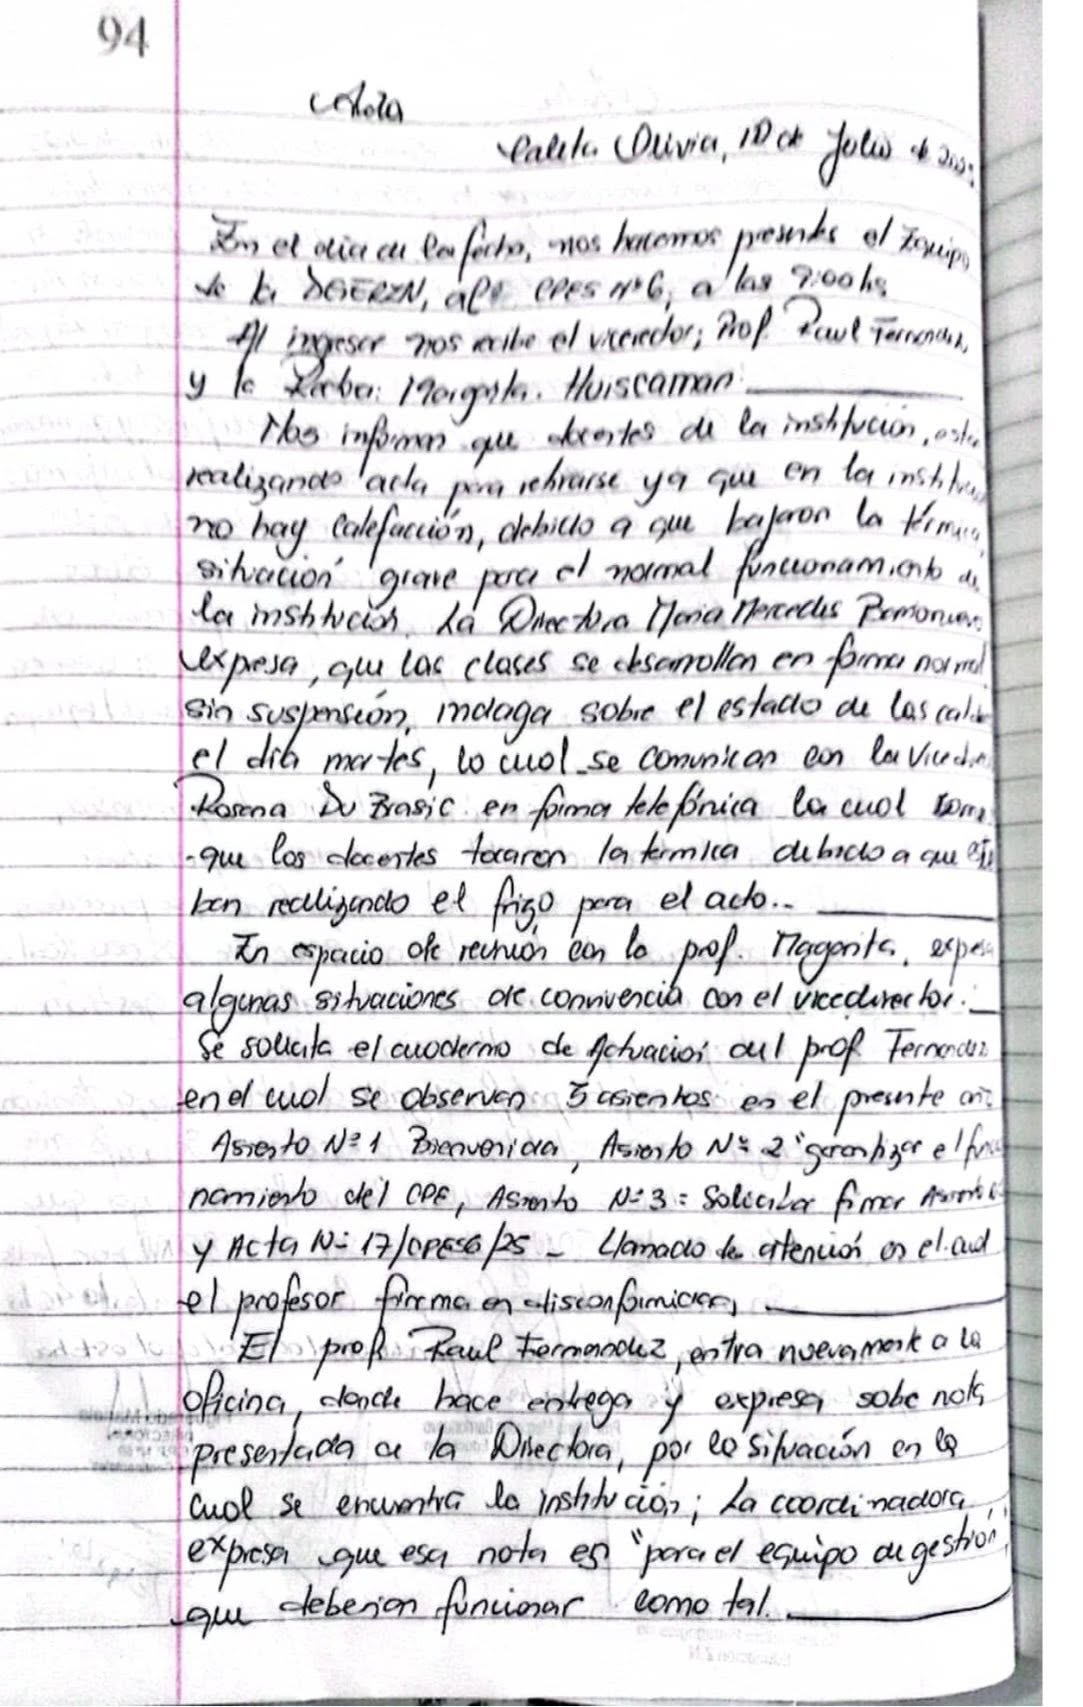 94
Acta
Caleta Olivia, 10 de Julio de
En el dia de la fecha, nos hacemos presentes el Equipo
de la DGERZN, al CPES Nº 6, a las 9:00 hs
Al ingresar nos recibe el vicerector; Prof. Raul Fernandez,
y la Margarita. Huiscaman.
Nos informan que docentes de la institución,
realizando acta para retirarse ya que en la
no hay calefacción, debido a que bajaron la térmica,
situación grave para el normal funcionamiento de
la institución. La Directora Maria Mercedes
expresa, que las clases se desarrollan en forma normal
sin suspensión, indaga sobre el estado de las
el día martes, lo cual se comunican con la
Rosana Du Brasic en forma telefónica la cual
que los docentes tocaron la termica debido a que
ban realizando el frizo para el acto..
En espacio de reunión con la prof. Magarita, expresa
algunas situaciones de convivencia con el vicedirector.
Se solicita el cuaderno de Actuación del prof Fernandez
en el cual se observan 5 asientos en el presente
Asiento Nº 1 Bienvenida, Asiento Nº 2 "garantizar el
namiento del CPE, Asiento Nº 3 = Solicitar firmar
y Acta Nº 17/CPES6/25 - Llamado de atención en el cual
el profesor firma en disconformidad,
El prof Raul Fernandez, entra nuevamente a la
oficina, donde hace entrega y expresa sobe nota
presentada a la Directora, por la situación en la
cual se encuentra la institución; La coordinadora
expresa que esa nota es "para el equipo de gestión"
que deberian funcionar como tal.